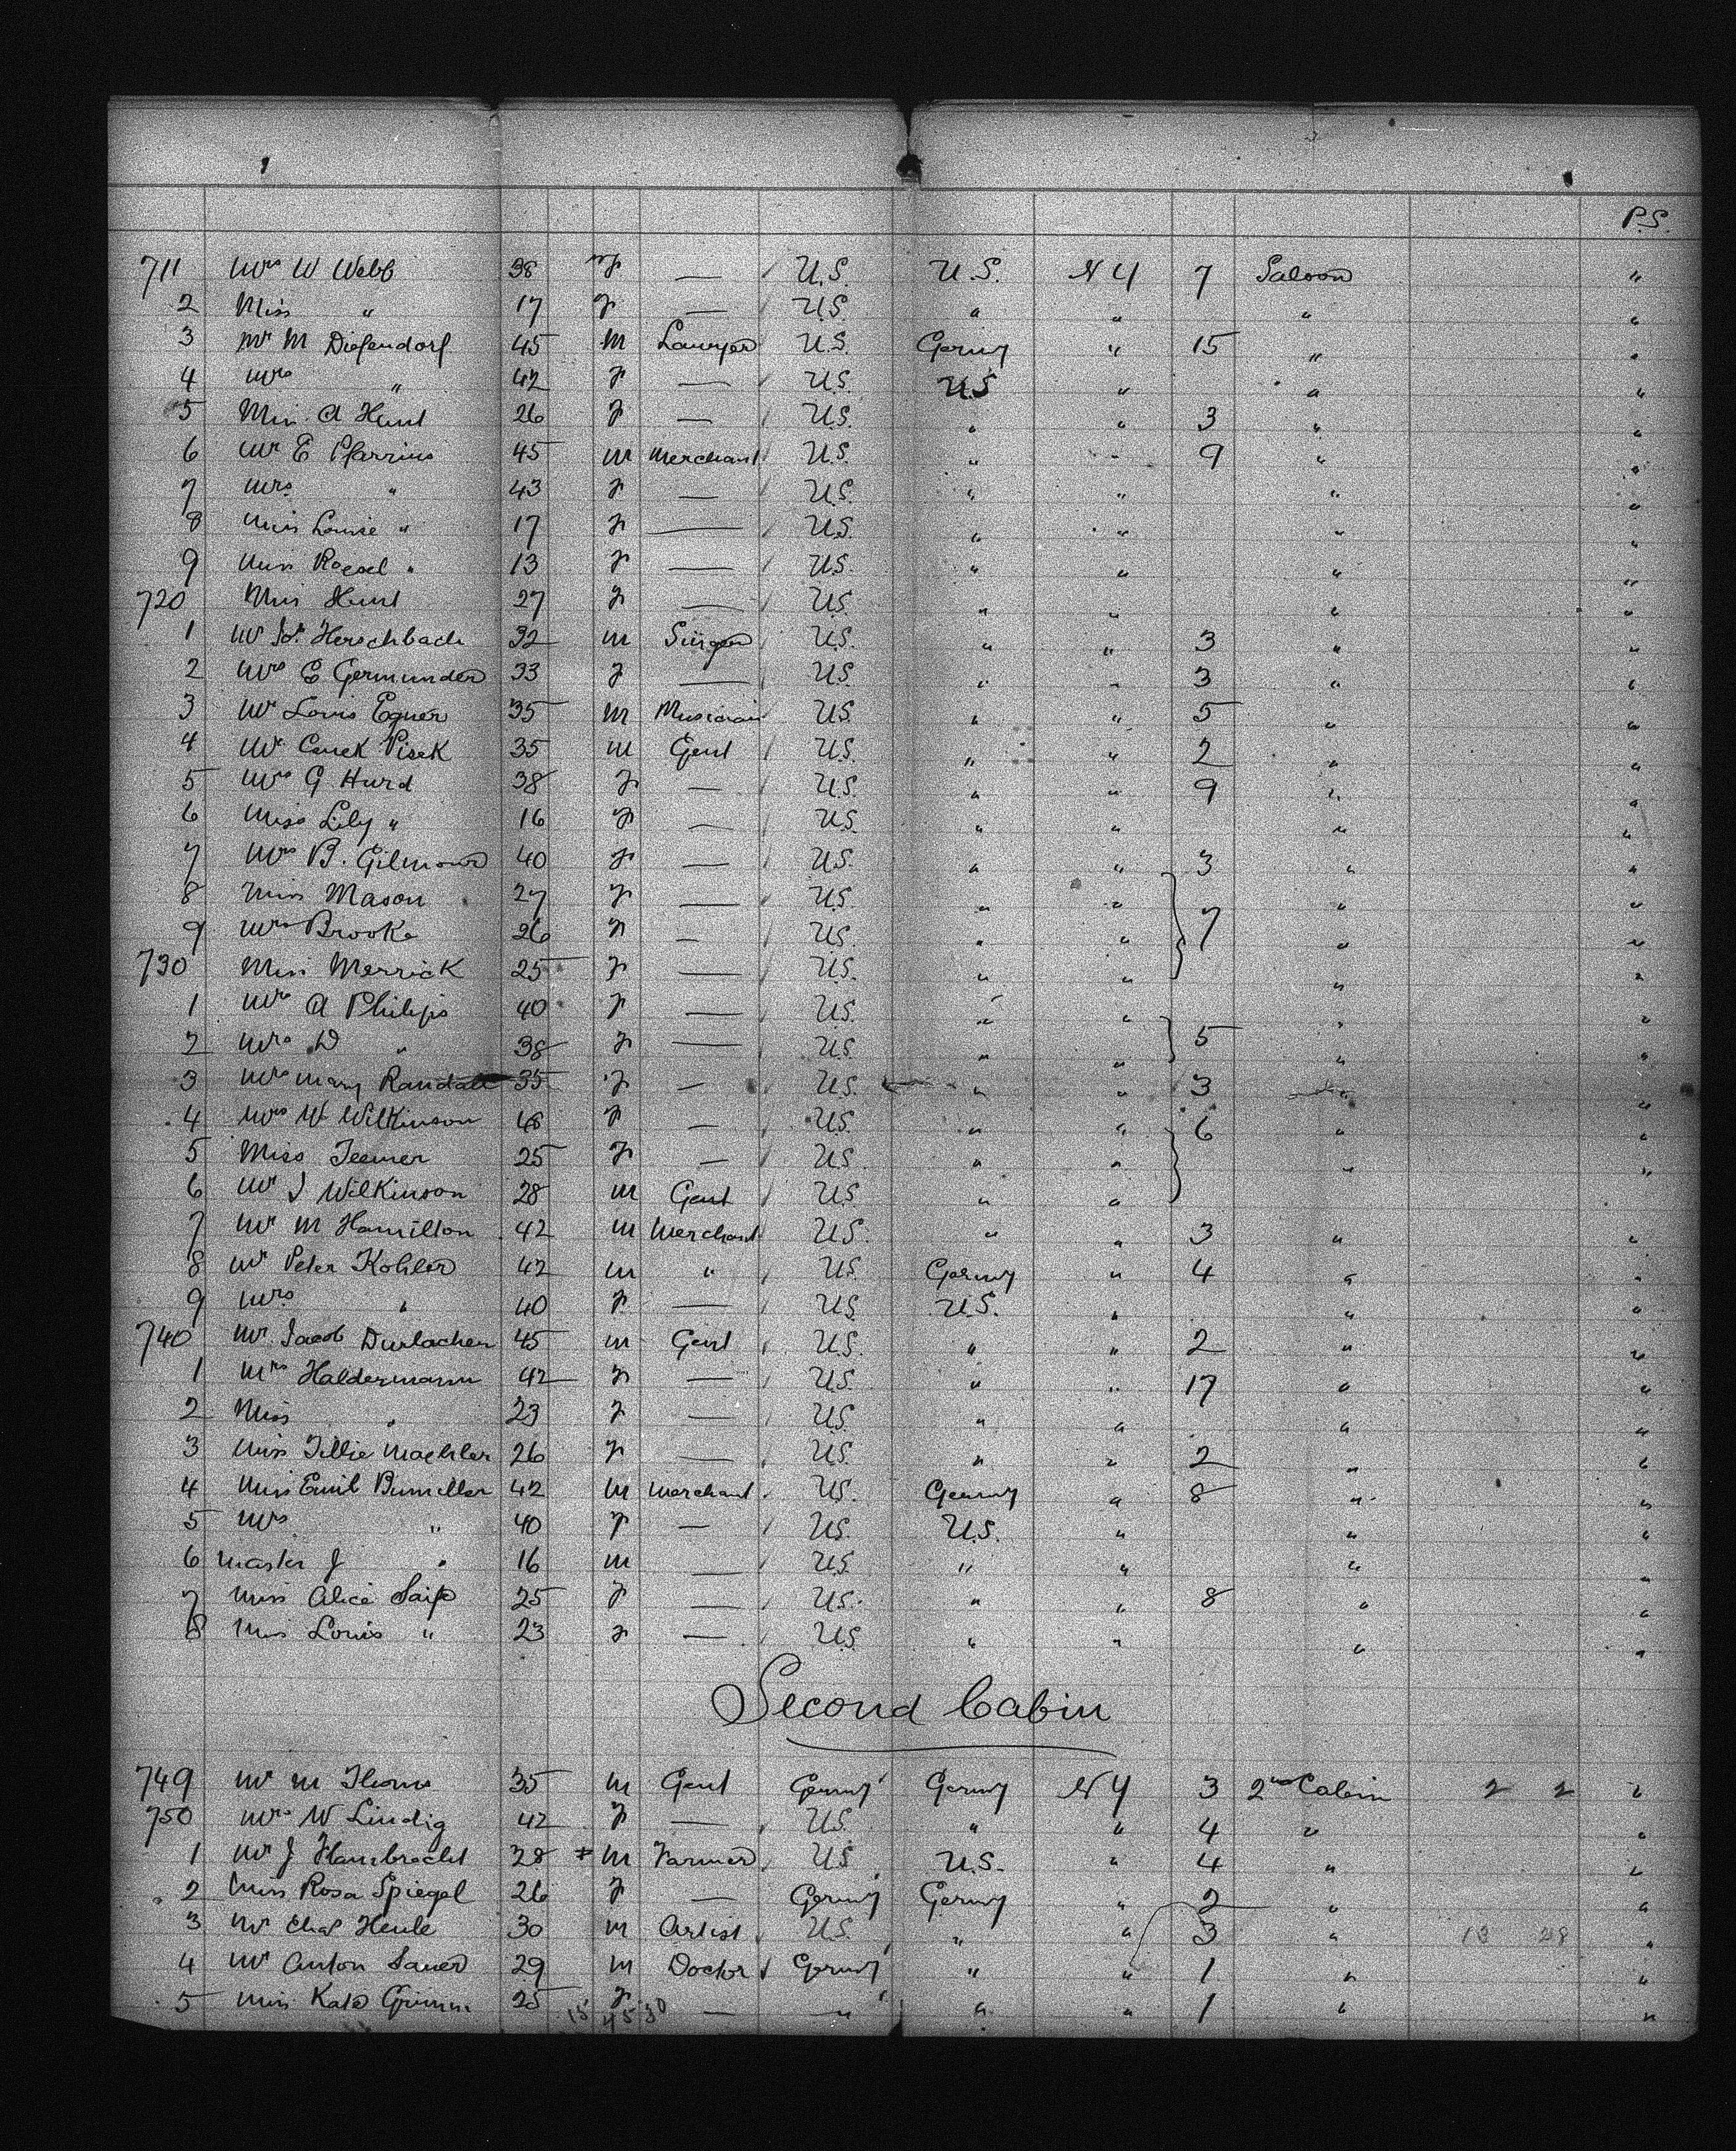 P.S.
711 Mrs W Webb 38 F — U.S. U.S. N Y 7 Saloon "
2 Miss " 17 F — U.S. " " "  "
3 Mr M Diefendorf 45 M Lawyer U.S. Germy " 15 " "
4 Mrs " 42 F — U.S. U.S " " "
5 Miss A Hunt 26 F — U.S. " " 3 " "
6 Mr E Pfarrius 45 M Merchant U.S. " " 9 " "
7 Mrs " 43 F — U.S. " " " "
8 Miss Louise " 17 F — U.S. " " " "
9 Miss " 13 F — U.S. " " " "
720 Miss Hunt 27 F — U.S. " " " "
1 Mr Herschbach 32 M U.S. " " 3 " "
2 Mrs E Germunder 33 F — U.S. " " 3 " "
3 Mr Louis Egner 35 M Musician U.S. " " 5 " "
4 Mr Pisek 35 M Gent U.S. " " 2 " "
5 Mrs G Hurd 38 F — U.S. " " 9 " "
6 Miss Lily " 16 F — U.S. " " " "
7 Mrs B. Gilmour 40 F — U.S. " " 3 " "
8 Miss Mason 27 F — U.S. " " " "
9 Mrs Brooke 26 F — U.S. " " 7 " "
730 Miss Merrick 25 F — U.S. " " " "
1 Mrs A Philips 40 F — U.S. " " " "
2 Mrs D " 38 F — U.S. " " 5 " "
3 Mrs Mary Randall 35 F — U.S. " " 3 " "
4 Mrs W Wilkinson 48 F — U.S. " " 6 " "
5 Miss Teemer 25 F — U.S. " " " "
6 Mr J Wilkinson 28 M Gent U.S. " " "
7 Mr M Hamilton 42 M Merchant U.S. " " 3 " "
8 Mr Peter Kohler 42 M " U.S. Germy " 4 " "
9 Mrs " 40 F — U.S. U.S. " " "
740 Mr Jacob Durlacher 45 M Gent U.S. " " 2 " "
1 Mrs Haldermann 42 F — U.S. " " 17 " "
2 Miss " 23 F — U.S. " " " "
3 Miss Tillie Maehler 26 F — U.S. " " 2 " "
4 Miss Emil Bumiller 42 M Merchant U.S. Germy " 8 " "
5 Mrs " 40 F — U.S. U.S. " " "
6 Master J " 16 M — U.S. " " " "
7 Miss Alice 25 F — U.S. " " 8 " "
8 Miss Louis " 23 F — U.S. " " " "
Second Cabin
749 Mr M Thoms 35 M Gent Germy Germy N Y 3 2nd Cabin 2 2 "
750 Mrs W Lindig 42 F — U.S. " " 4 " "
1 Mr J Hambrecht 28 M Farmer U.S. U.S. " 4 " "
2 Miss Rosa Spiegel 26 F — Germy Germy " 2 " "
3 Mr Chas Henle 30 M Artist U.S. " " 3 " 13 28 "
4 Mr Anton Sauer 29 M Doctor Germy " " 1 " "
5 Miss Kate Grimm 25 F — " " " 1 " "